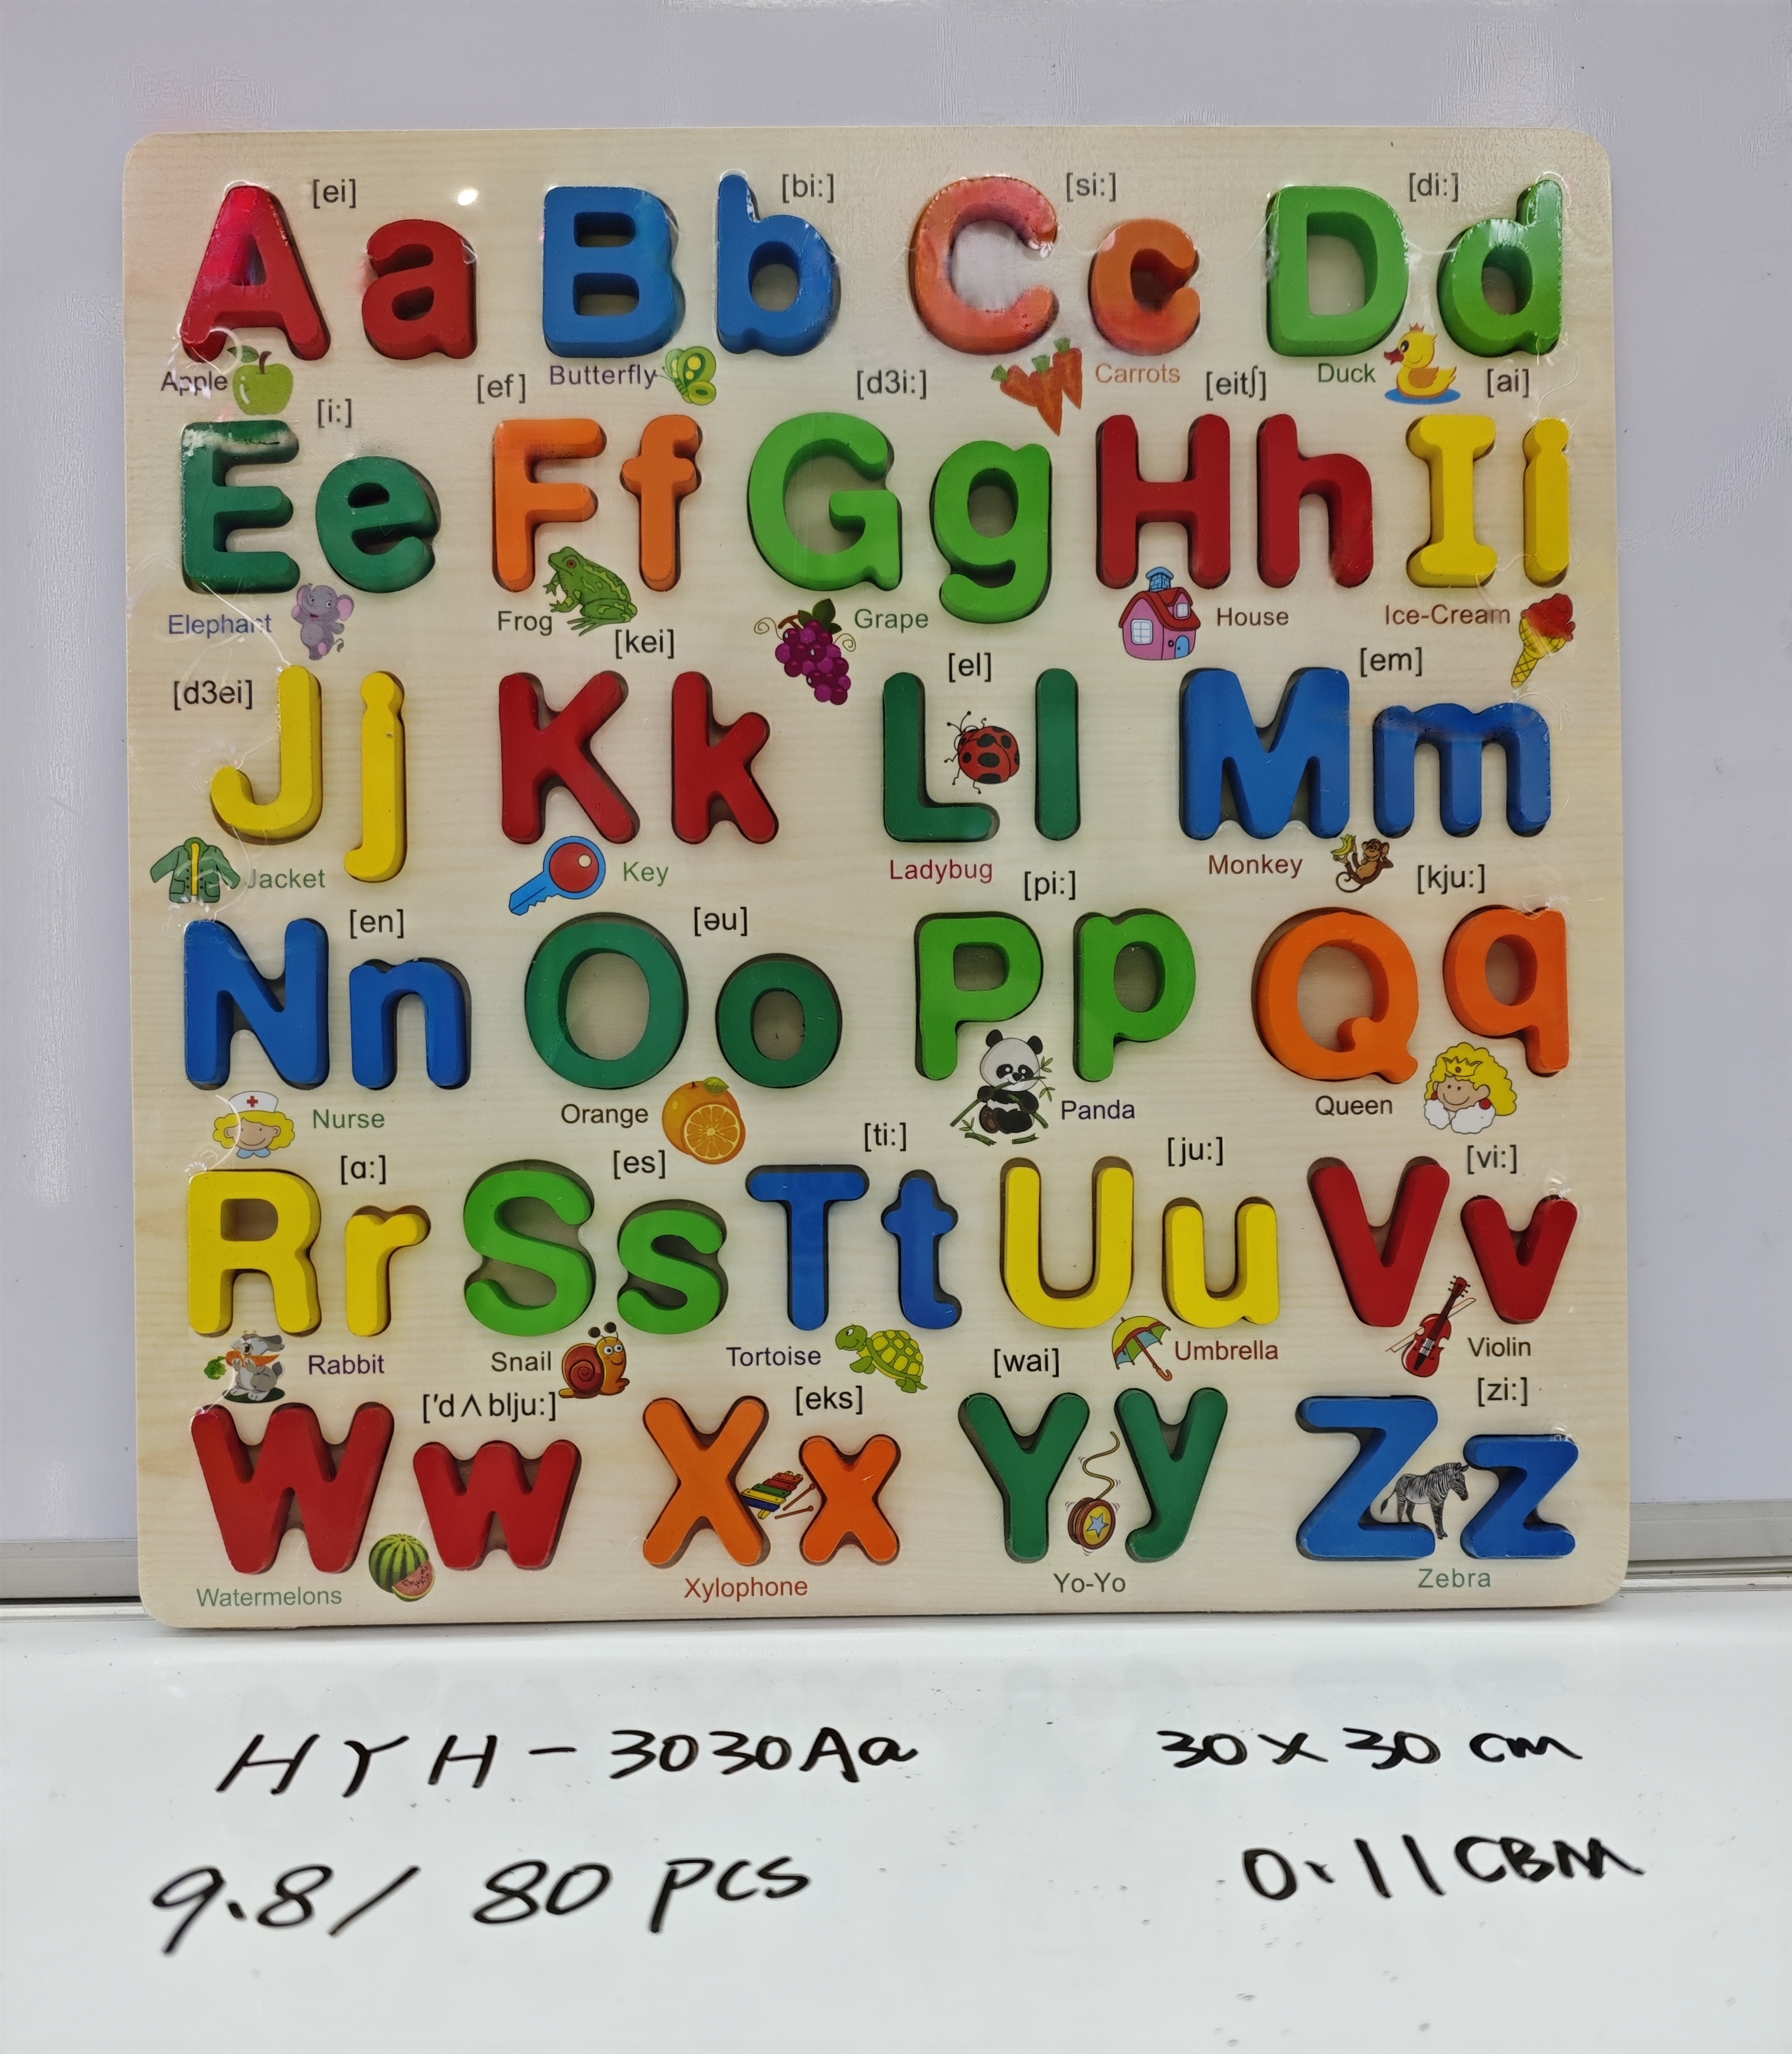 [ei] [bi:] [si:] [di:]
Aa Bb Cc Dd
Apple Butterfly Carrots Duck
[i:] [ef] [d3i:] [eitʃ] [ai]
Ee Ff Gg Hh Ii
Elephant Frog Grape House Ice-Cream
[d3ei] [kei] [el] [em]
Jj Kk Ll Mm
Jacket Key Ladybug Monkey
[en] [əu] [pi:] [kju:]
Nn Oo Pp Qq
Nurse Orange Panda Queen
[ɑ:] [es] [ti:] [ju:] [vi:]
Rr Ss Tt Uu Vv
Rabbit Snail Tortoise Umbrella Violin
['dΛblju:] [eks] [wai] [zi:]
Ww Xx Yy Zz
Watermelons Xylophone Yo-Yo Zebra
HYH-3030Aa 30x30 cm
9.8/ 80 pcs 0.11CBM